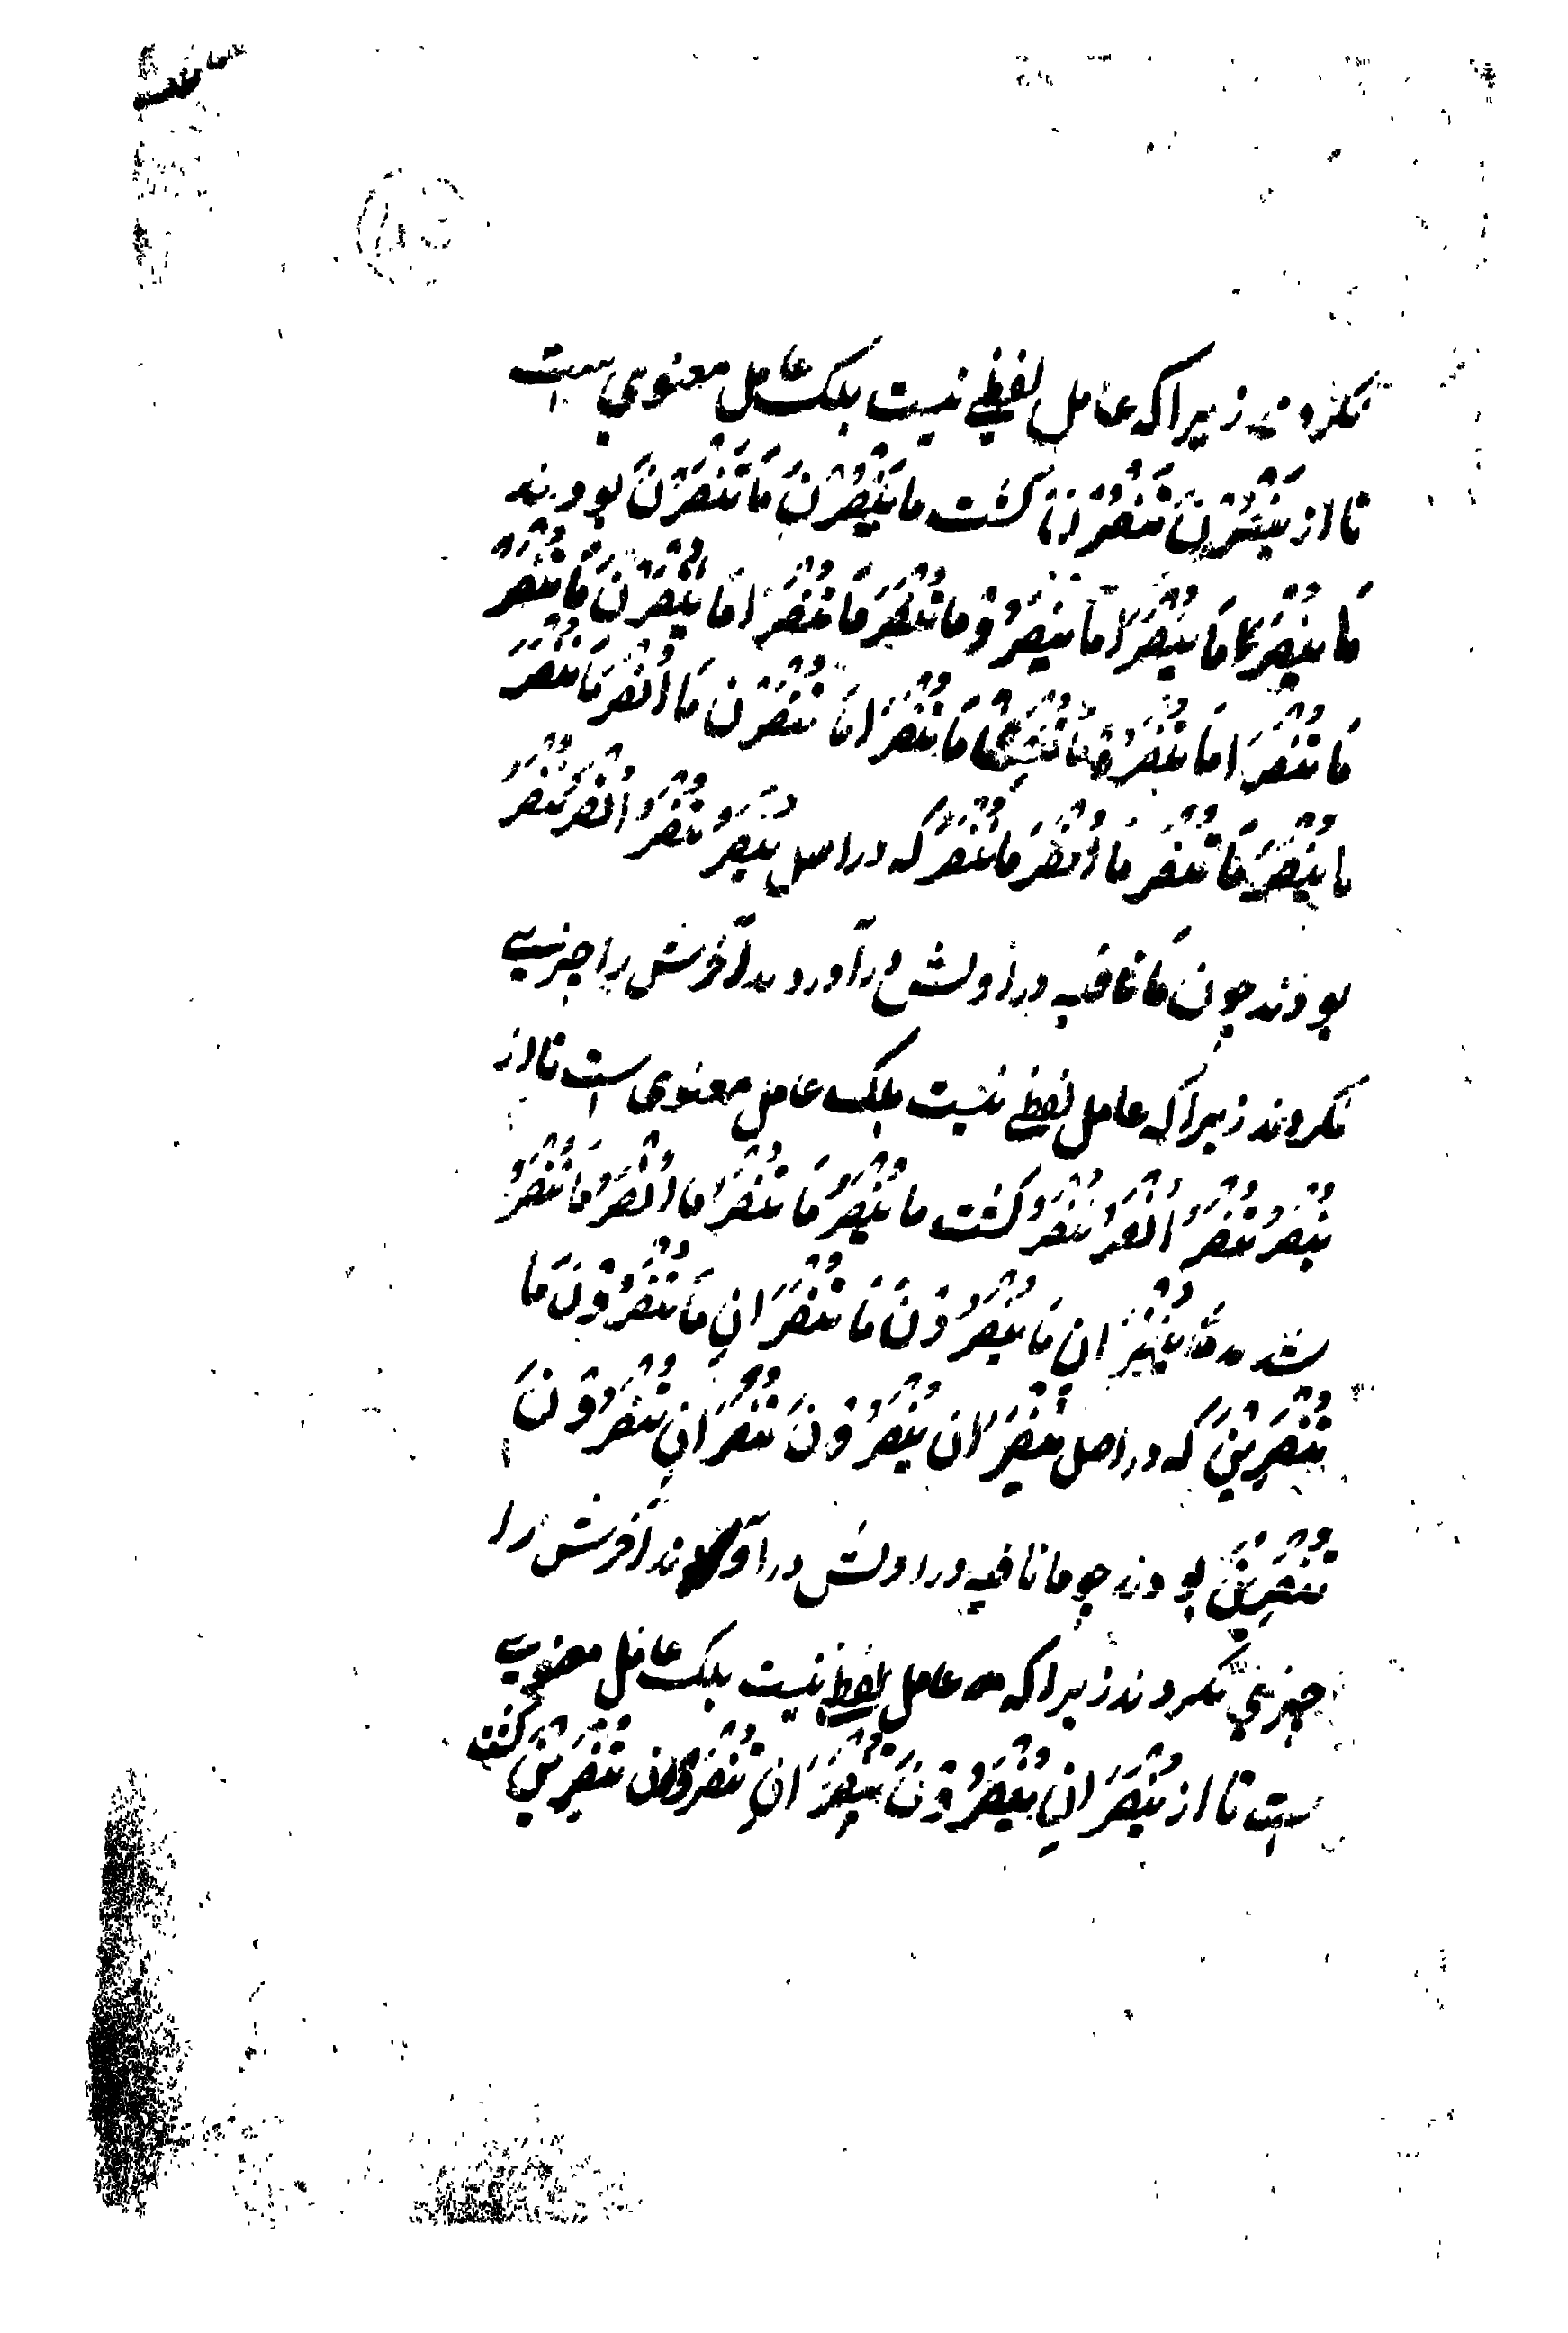 نکردند زیراکه عامل لفظی نیست بلکه عامل معنوی ست
تا از یَنْصُرْنَ تَنْصُرْنَ گشت ما یَنْصُرْنَ مَا تَنْصُرْنَ بودند
مَا یُنْصَرَا مَا یُنْصَرُوْ مَا تُنْصَرَ مَا تُنْصَرَا مَا یُنْصَرْنَ مَا تُنْصَرَ
مَا تُنْصَرَا مَا تُنْصَرُوْ مَا تُنْصَرَا مَا تُنْصَرْنَ مَا اُنْصَرَ مَا نُنْصَرَ
ما یُنْصَرُ مَا تُنْصَرُ مَا اُنْصَرُ مَا نُنْصَرُ که در اصل یُنْصَرُ تُنْصَرُ اُنْصَرُ نُنْصَرُ
بودند چون مَا نافیه در اولش درآوردند آخرش را جزمی
نکردند زیراکه عامل لفظی نیست بلکه عامل معنوی ست تا از
یُنْصَرُ تُنْصَرُ اُنْصَرُ نُنْصَرُ گشت ما یُنْصَرُ مَا تُنْصَرُ مَا اُنْصَرُ مَا نُنْصَرُ
شدند مَا یُنْصَرَانِ مَا یُنْصَرُوْنَ مَا تُنْصَرَانِ مَا تُنْصَرُوْنَ مَا
تُنْصَرِیْنَ که در اصل یُنْصَرَانِ یُنْصَرُوْنَ تُنْصَرَانِ تُنْصَرُوْنَ
تُنْصَرِیْنَ بودند چو ما نافیه در اولش درآوردند آخرش را
جزمی نکردند زیراکه عامل لفظی نیست بلکه عامل معنوی
ست تا از یُنْصَرَانِ یُنْصَرُوْنَ تُنْصَرَانِ تُنْصَرُوْنَ تُنْصَرِیْنَ گشت